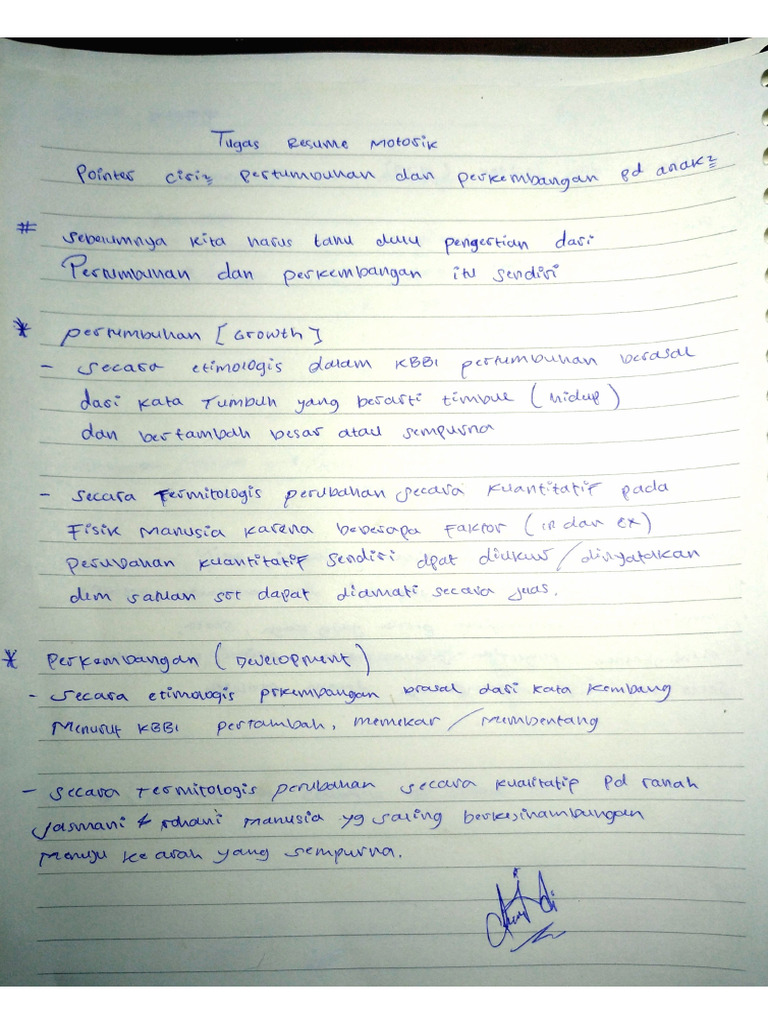 Tugas Resume Motorik
Pointer ciri2 pertumbuhan dan perkembangan pd anak2
# Sebelumnya kita harus tahu dulu pengertian dari
Pertumbuhan dan perkembangan itu sendiri
* pertumbuhan [Growth]
- secara etimologis dalam KBBI pertumbuhan berasal
dari kata Tumbuh yang berarti timbul (hidup)
dan bertambah besar atau sempurna
- secara Termitologis perubahan secara kuantitatif pada
Fisik Manusia karena beberapa Faktor (in dan ex)
perubahan kuantitatif sendiri dpat diukur/dinyatakan
dlm satuan sbt dapat diamati secara juas.
* Perkembangan (Development)
- secara etimologis prkembangan, brasal dari kata kembang
Menurut KBBI pertambah, memekar/Membentang
- secara Termitologis perubahan secara kualitatif pd ranah
Jasmani & rohani Manusia yg saling berkesinambungan
Menuju ke arah yang sempurna.